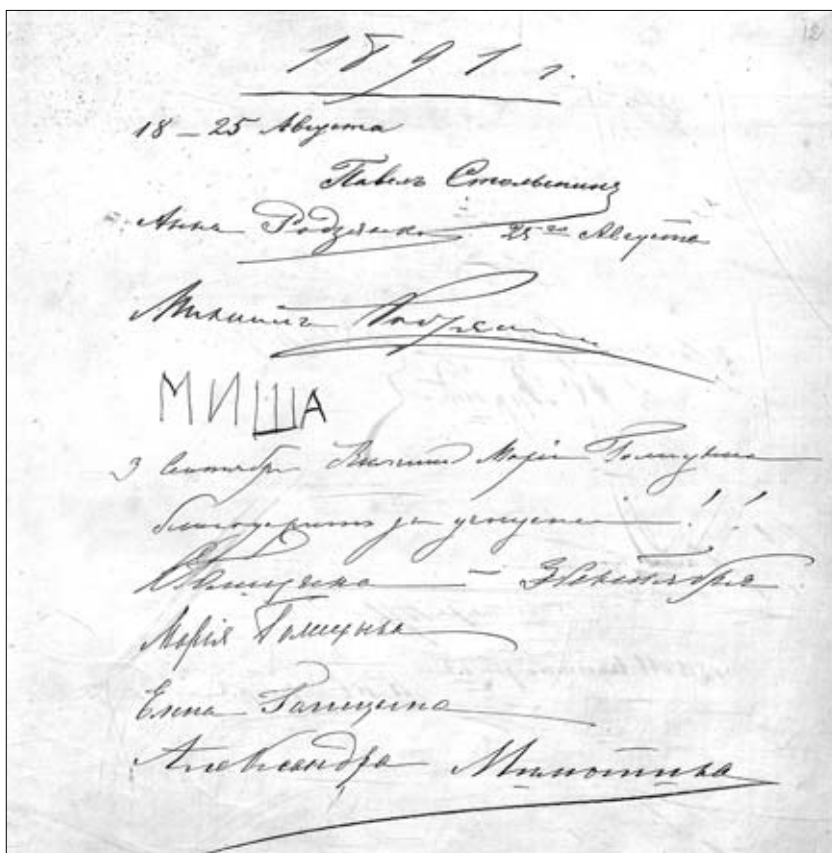 1891 г.
18 – 25 Августа
Павелъ Столыпинъ
Анна Родзянко 25го Августа
Михаилъ Родзянко
МИША
3 Сентября Марія Голицына
благодарит за !!
Голицына – 3 Сентября
Марія Голицына
Елена Голицына
Александра Милютина